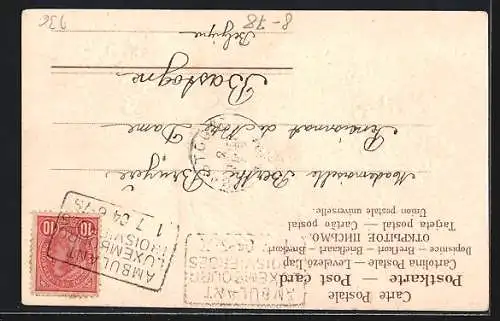 Carte Postale
Postkarte — Post card
Cartolina Postale — Levelező-Lap
Dopisnice — Brefkort — Briefkaart — Brevkort
ОТКРЫТОЕ ПИСЬМО.
Tarjeta postal — Cartão postal
Union postale universelle.
Mademoiselle Berthe Bruyère
Pensionnat de Notre Dame
Bastogne
Belgique
10 10
AMBULANT
LUXEMBOURG
TROISVIERGES
1 7 04 6-7S
AMBULANT
LUXEMBOURG
TROISVIERGES
8-78